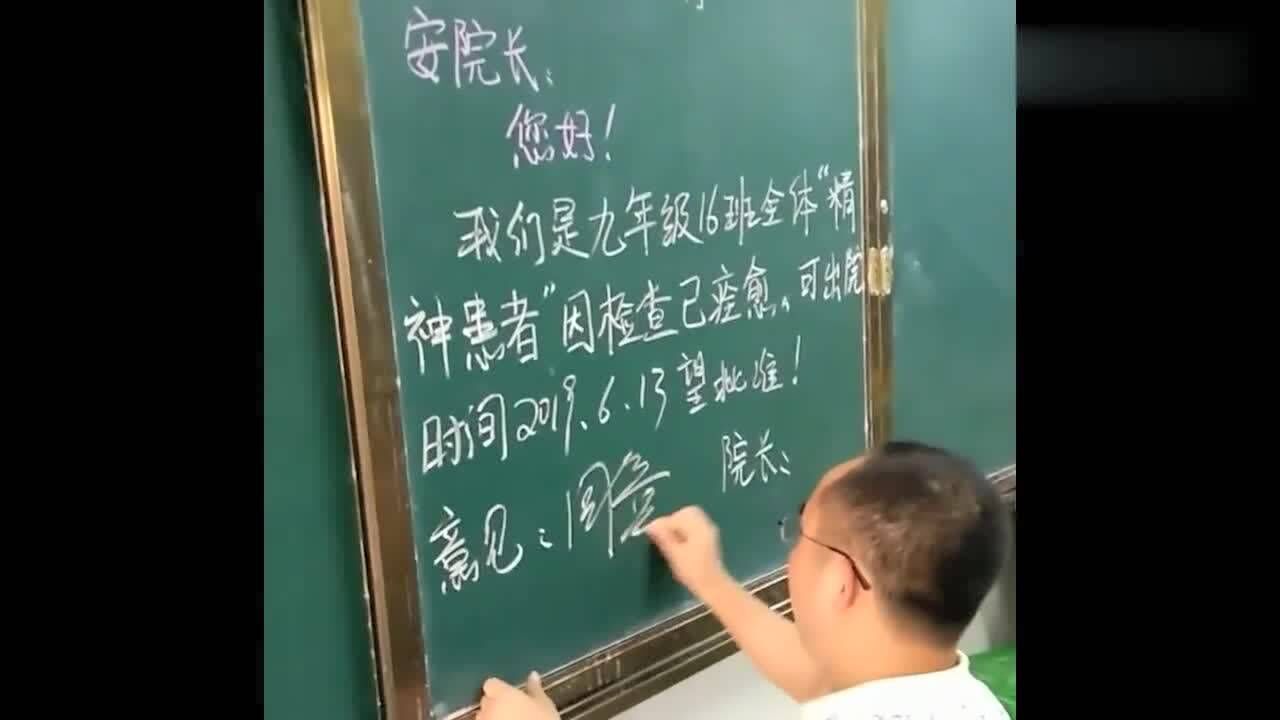 安院长：
您好！
我们是九年级16班全体“精
神患者”因检查已痊愈，可出院
时间2019.6.13望批准！
院长：
意见：同意